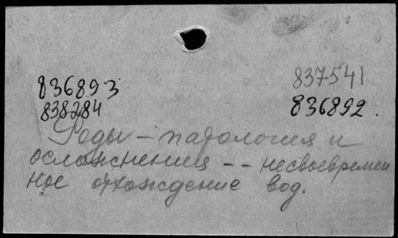 836893 837541
838284 836892.
Роды – патология и
осложнения -- несвоевремен
ное отхождение вод.